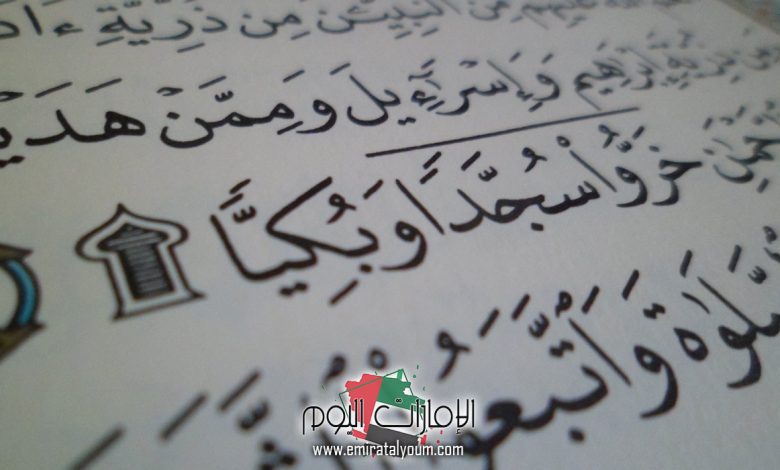 مِّنَ ٱلنَّبِيِّـۧنَ مِن ذُرِّيَّةِ ءَاد
ذُرِّيَّةِ إِبْرَٰهِيمَ وَإِسْرَٰٓءِيلَ وَمِمَّنْ هَدَيْ
خَرُّوا۟ سُجَّدًا وَبُكِيًّا ۩
لَوٰةَ وَٱتَّبَعُوا۟
الإمارات اليوم
www.emiratalyoum.com